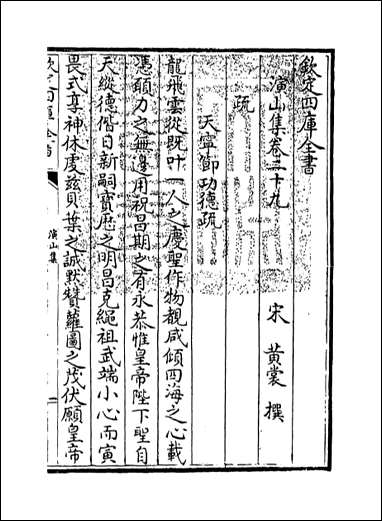 欽定四庫全書
演山集卷三十九
宋 黃裳 撰
疏
天寧節功德疏
龍飛雲從既叶一人之慶聖作物覩咸傾四海之心載
憑頠力之無邊用祝昌期之有永恭惟皇帝陛下聖自
天縱德偕日新嗣寶歷之明昌克繩祖武端小心而寅
畏式享神休虔兹貝葉之誠默贊蘿圖之茂伏願皇帝
演山集